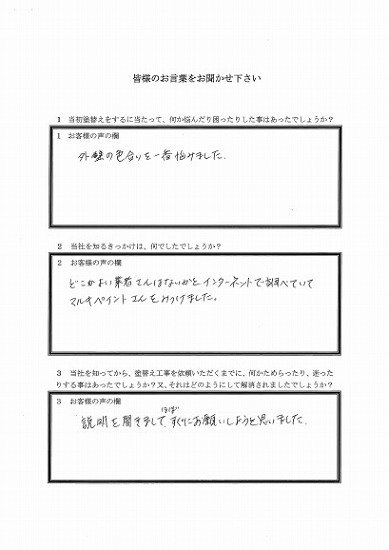 皆様のお言葉をお聞かせ下さい
1 当初塗替えをするに当たって、何か悩んだり困ったりした事はあったでしょうか?
1 お客様の声の欄
外壁の色合いを一番悩みました.
2 当社を知るきっかけは、何でしたでしょうか?
2 お客様の声の欄
どこかよい業者さんはないかとインターネットで調べていて
マルキペイントさんをみつけました。
3 当社を知ってから、塗替え工事を依頼いただくまでに、何かためらったり、迷った
りする事はあったでしょうか?又、それはどのようにして解消されましたでしょうか?
3 お客様の声の欄
ほぼ
説明を聞きまして、すぐにお願いしようと思いました.